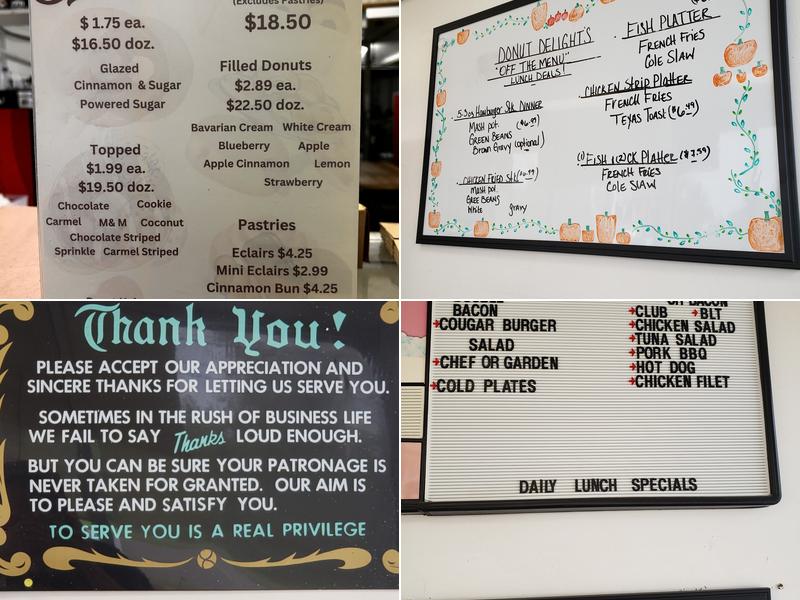 (Excludes Pastries)
$ 1.75 ea.
$16.50 doz.
Glazed
Cinnamon & Sugar
Powered Sugar
Topped
$1.99 ea.
$19.50 doz.
Chocolate Cookie
Carmel M& M Coconut
Chocolate Striped
Sprinkle Carmel Striped
$18.50
Filled Donuts
$2.89 ea.
$22.50 doz.
Bavarian Cream White Cream
Blueberry Apple
Apple Cinnamon Lemon
Strawberry
Pastries
Eclairs $4.25
Mini Eclairs $2.99
Cinnamon Bun $4.25
DONUT DELIGHTS
"OFF THE MENU"
LUNCH DEALS!
DINNER
MASH pot.
GREEN BEANS
Brown Gravy (optional)
CHICKEN FRIED
MASH pot
GREE BEANS
White gravy
FISH PLATTER
FRENCH FRIES
Cole SLAW
CHICKEN Strip Platter
FRENCH FRIES
TEXAS TOAST ($6.49)
Platter ($7.59)
FRENCH FRIES
Cole SLAW
Thank You!
PLEASE ACCEPT OUR APPRECIATION AND
SINCERE THANKS FOR LETTING US SERVE YOU.
SOMETIMES IN THE RUSH OF BUSINESS LIFE
WE FAIL TO SAY Thanks LOUD ENOUGH.
BUT YOU CAN BE SURE YOUR PATRONAGE IS
NEVER TAKEN FOR GRANTED. OUR AIM IS
TO PLEASE AND SATISFY YOU.
TO SERVE YOU IS A REAL PRIVILEGE
BACON
COUGAR BURGER
SALAD
CHEF OR GARDEN
COLD PLATES
BACON
CLUB BLT
CHICKEN SALAD
TUNA SALAD
PORK BBQ
HOT DOG
CHICKEN FILET
DAILY LUNCH SPECIALS